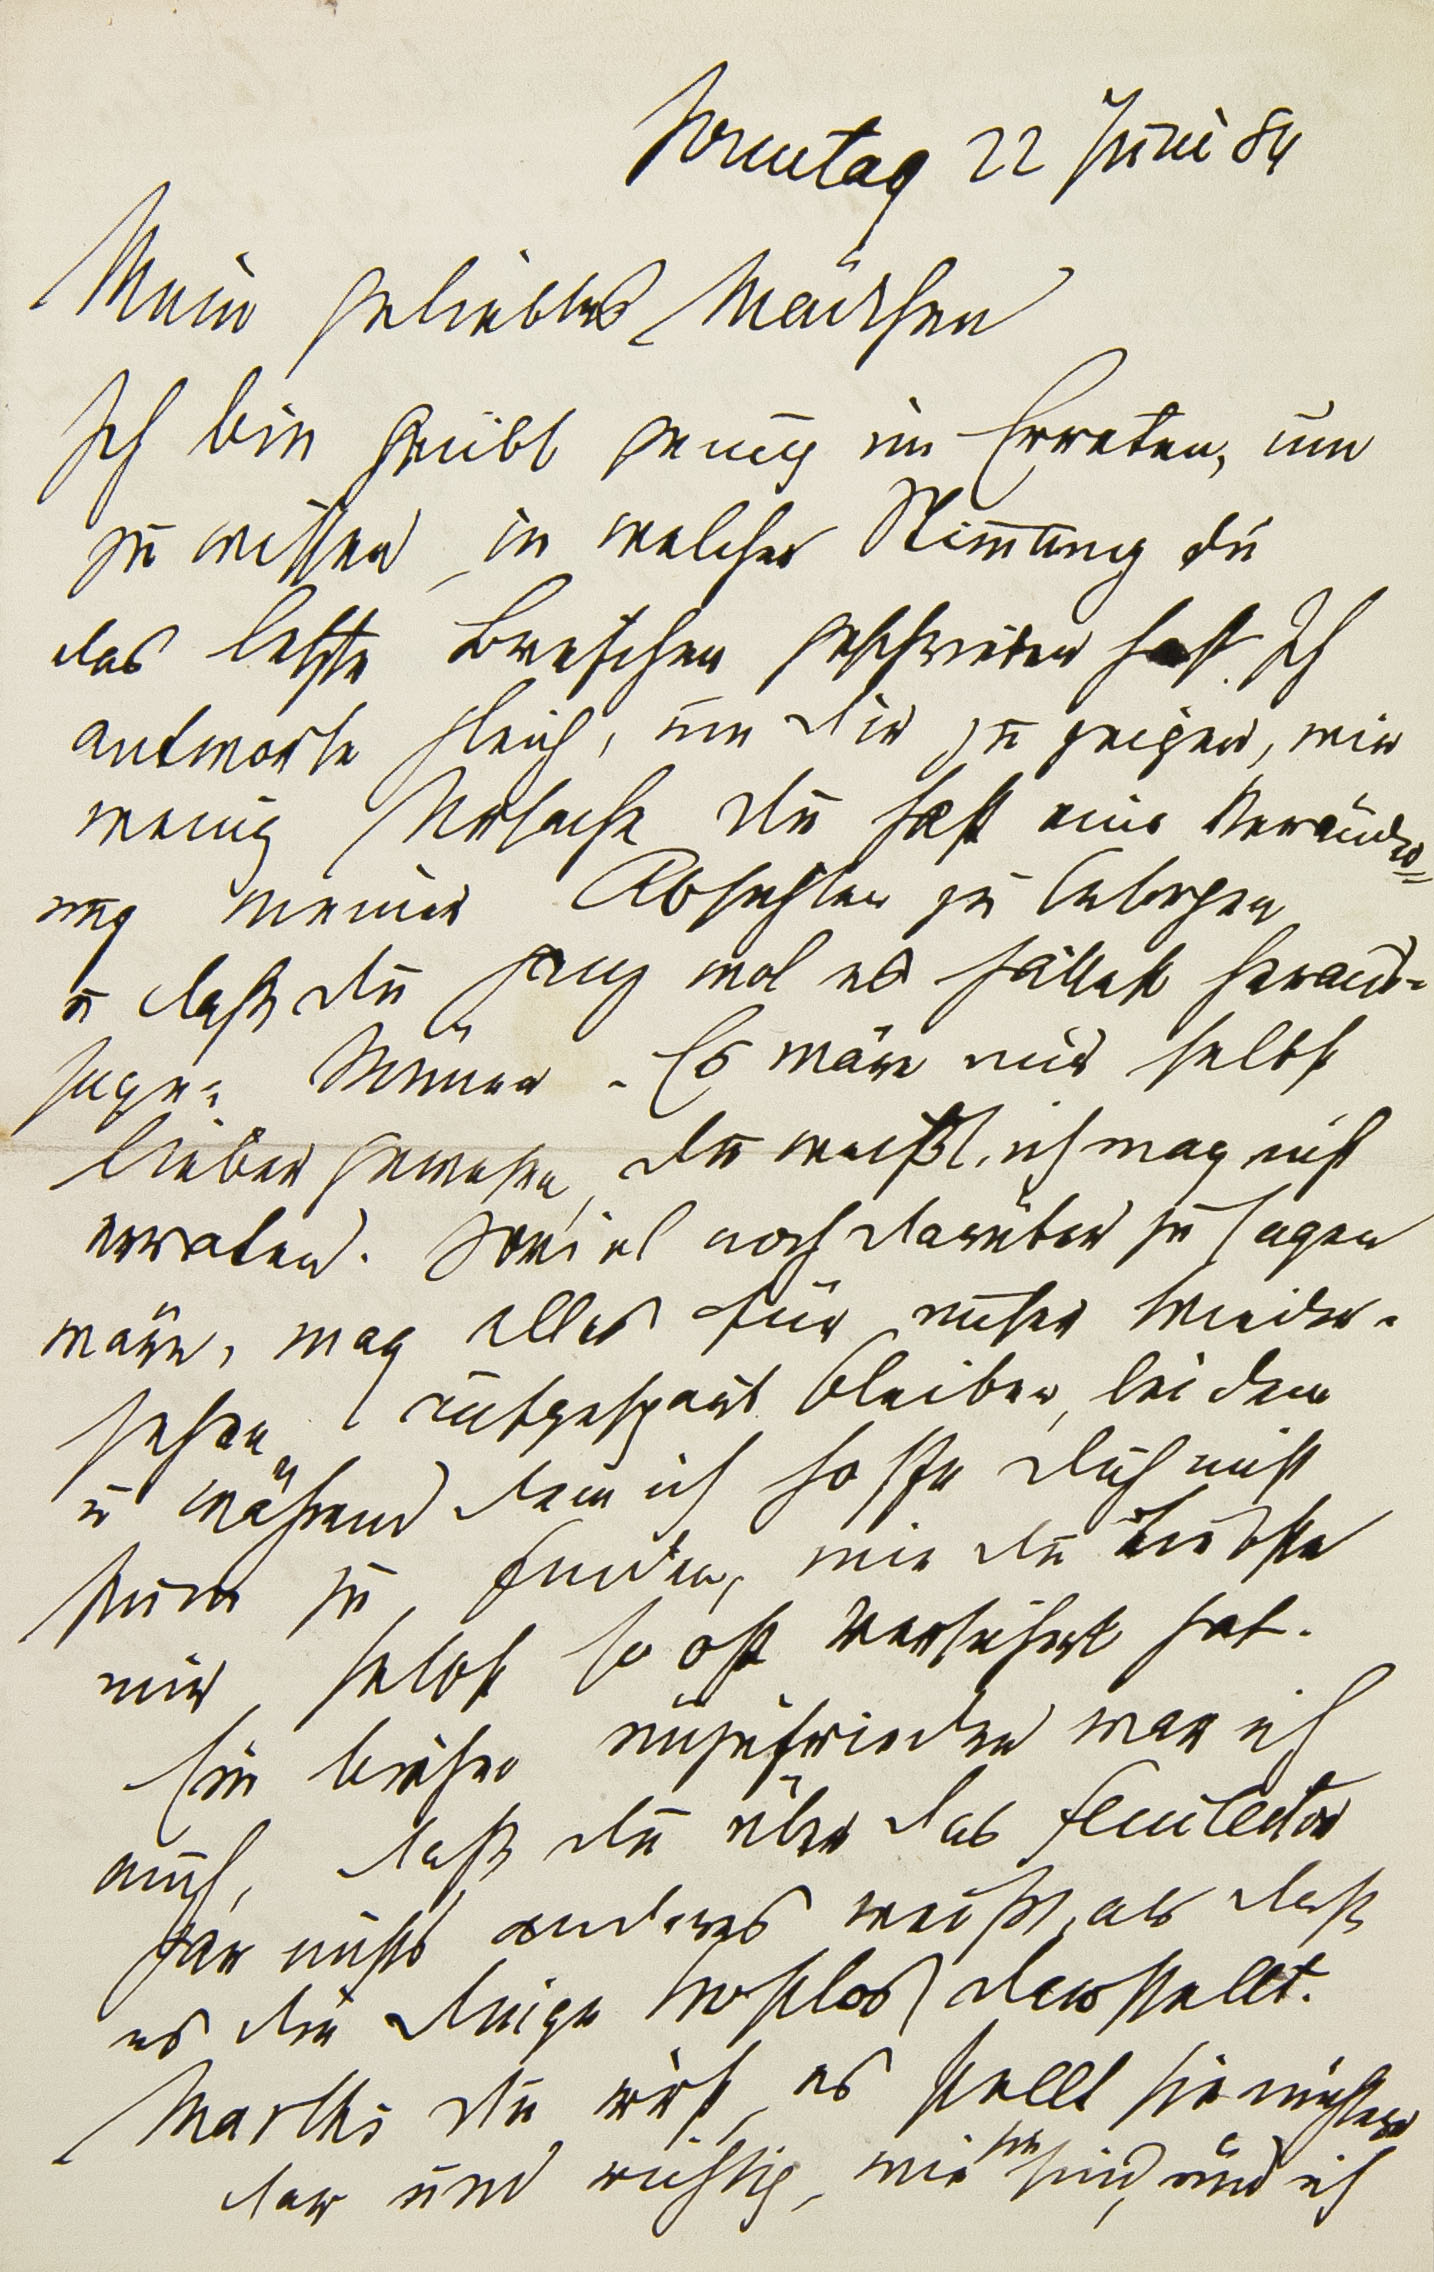 Sonntag 22 Juni 84
Mein geliebtes Mädchen
Ich bin geübt genug im Erraten, um
zu wissen, in welcher Stimmung du
das letzte Briefchen geschrieben hast. Ich
antworte gleich, um dir zu zeigen, wie
wenig Ursache du hast eine Veränder=
ung meiner Absichten zu besorgen
u daß du ganz wol es hättest heraus-
sagen können. Es wäre mir selbst
lieber gewesen, du weißt, ich mag nicht
erraten. Soviel noch darüber zu sagen
wäre, mag alles für unser Wieder-
sehen aufgespart bleiben, bei dem
u während dem ich hoffe dich nicht
stumm zu finden, wie du Liebste
mir selbst so oft versichert hast.
Ein bischen unzufrieden war ich
auch, daß du über das Feuilleton
gar nichts anderes weißt, als daß
es die Dinge trostlos darstellt.
Marthi du irrst, es stellt sie nüchtern
dar und richtig, wie sie sind, und ich